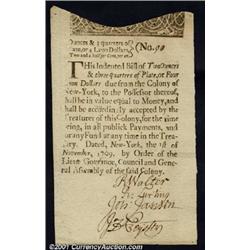 Ounces & 3 quarters of
Plate, or 4 Lyon Dollars,
Two and a half per Cent. per an.
(No. 90
THis Indented Bill of Two Ounces
& three quarters of Plate, or Four
Lyon Dollars due from the Colony of
New-York, to the Possessor thereof,
shall be in value equal to Money, and
shall be accordingly accepted by the
Treasurer of this Colony, for the time
being, in all publick Payments, and
for any Fund at any time in the Trea-
sury. Dated, New-York, the 1st of
November, 1709. by Order of the
Lieut. Governor, Council and General
Assembly of the said Colony.
R Walter
Jon Jansen
©2001 - Currency Auction